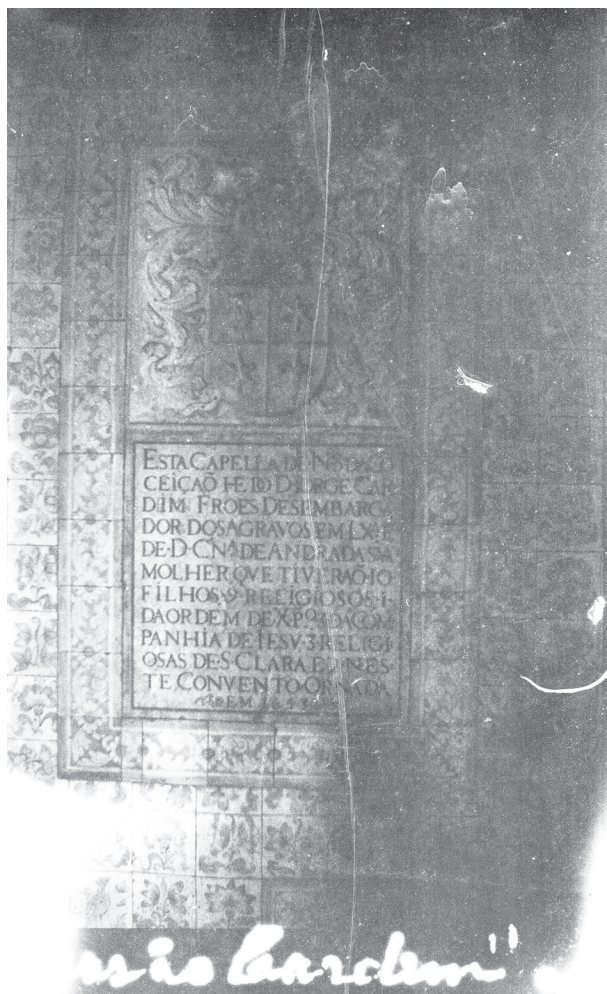 ESTA CAPELLA DE N S DA CO
CEIÇAÕ HE DO D IORGE CAR
DIM FROES DESEMBARGA
DOR DOS AGRAVOS EM LXª E
DE D CNª DE ANDRADA SVA
MOLHER QVE TIVERAÕ 10
FILHOS 9 RELIGIOSOS I
DA ORDEM DE XPO DA COM
PANHIA DE IESV 3 RELIGI
OSAS DE S CLARA E NES
TE CONVENTO ORNADA
EM
Cardem"